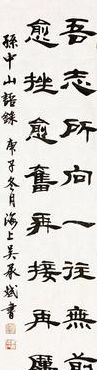 吾志所向一往無前
愈挫愈奮再接再厲
孫中山語錄 庚子冬月海上吳承斌書